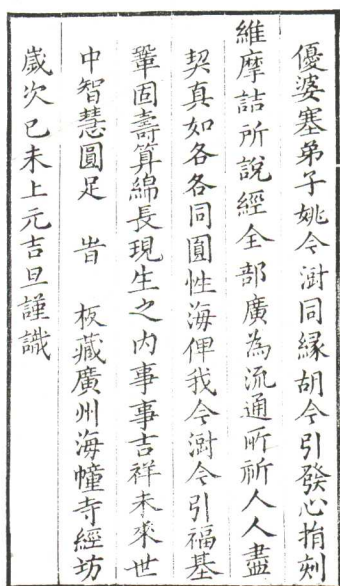 優婆塞弟子姚今澍同縁胡今引發心捐刻
維摩詰所說經全部廣為流通所祈人人盡
契真如各各同圓性海俾我今澍今引福基
鞏固壽算綿長現生之内事事吉祥未來世
中智慧圓足　旹　板藏廣州海幢寺經坊
歲次己未上元吉旦謹識